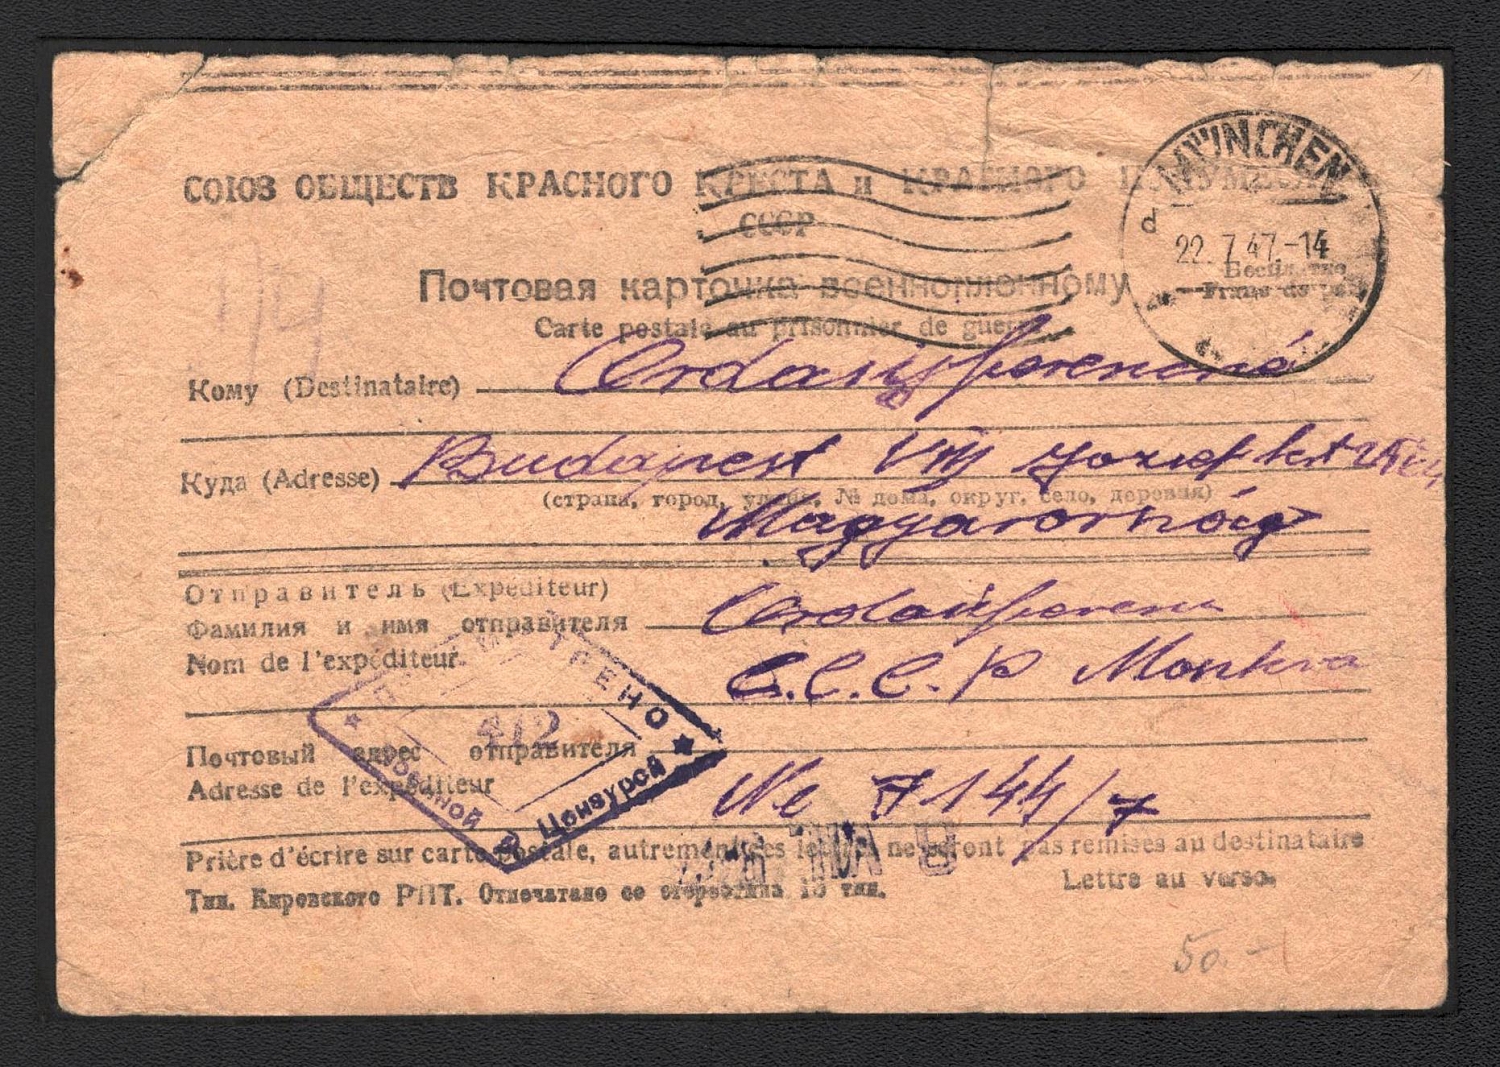 СОЮЗ ОБЩЕСТВ КРАСНОГО КРЕСТА и КРАСНОГО ПОЛУМЕСЯЦА
СССР
MÜNCHEN
d
22.7.47.-14
Бесплатно
Franc de port
Почтовая карточка военнопленному
Carte postale au prisonnier de guerre
Кому (Destinataire) Ordasi Ferencné
Куда (Adresse) Budapest VIII József
(страна, город, улица, № дома, округ, село, деревня)
Magyarország
Отправитель (Expéditeur)
Фамилия и имя отправителя Ordasi Ferenc
Nom de l'expéditeur. C.C.C.P Moskva
Почтовый адрес отправителя
Adresse de l'expéditeur № 7144/7
ПРОСМОТРЕНО
412
Военной Цензурой
Prière d'écrire sur carte postale, autrement ces lettres ne seront pas remises au destinataire
Тип. Кировского РПТ. Отпечатано со стереотипа 15 тип.
Lettre au verso.
50.-